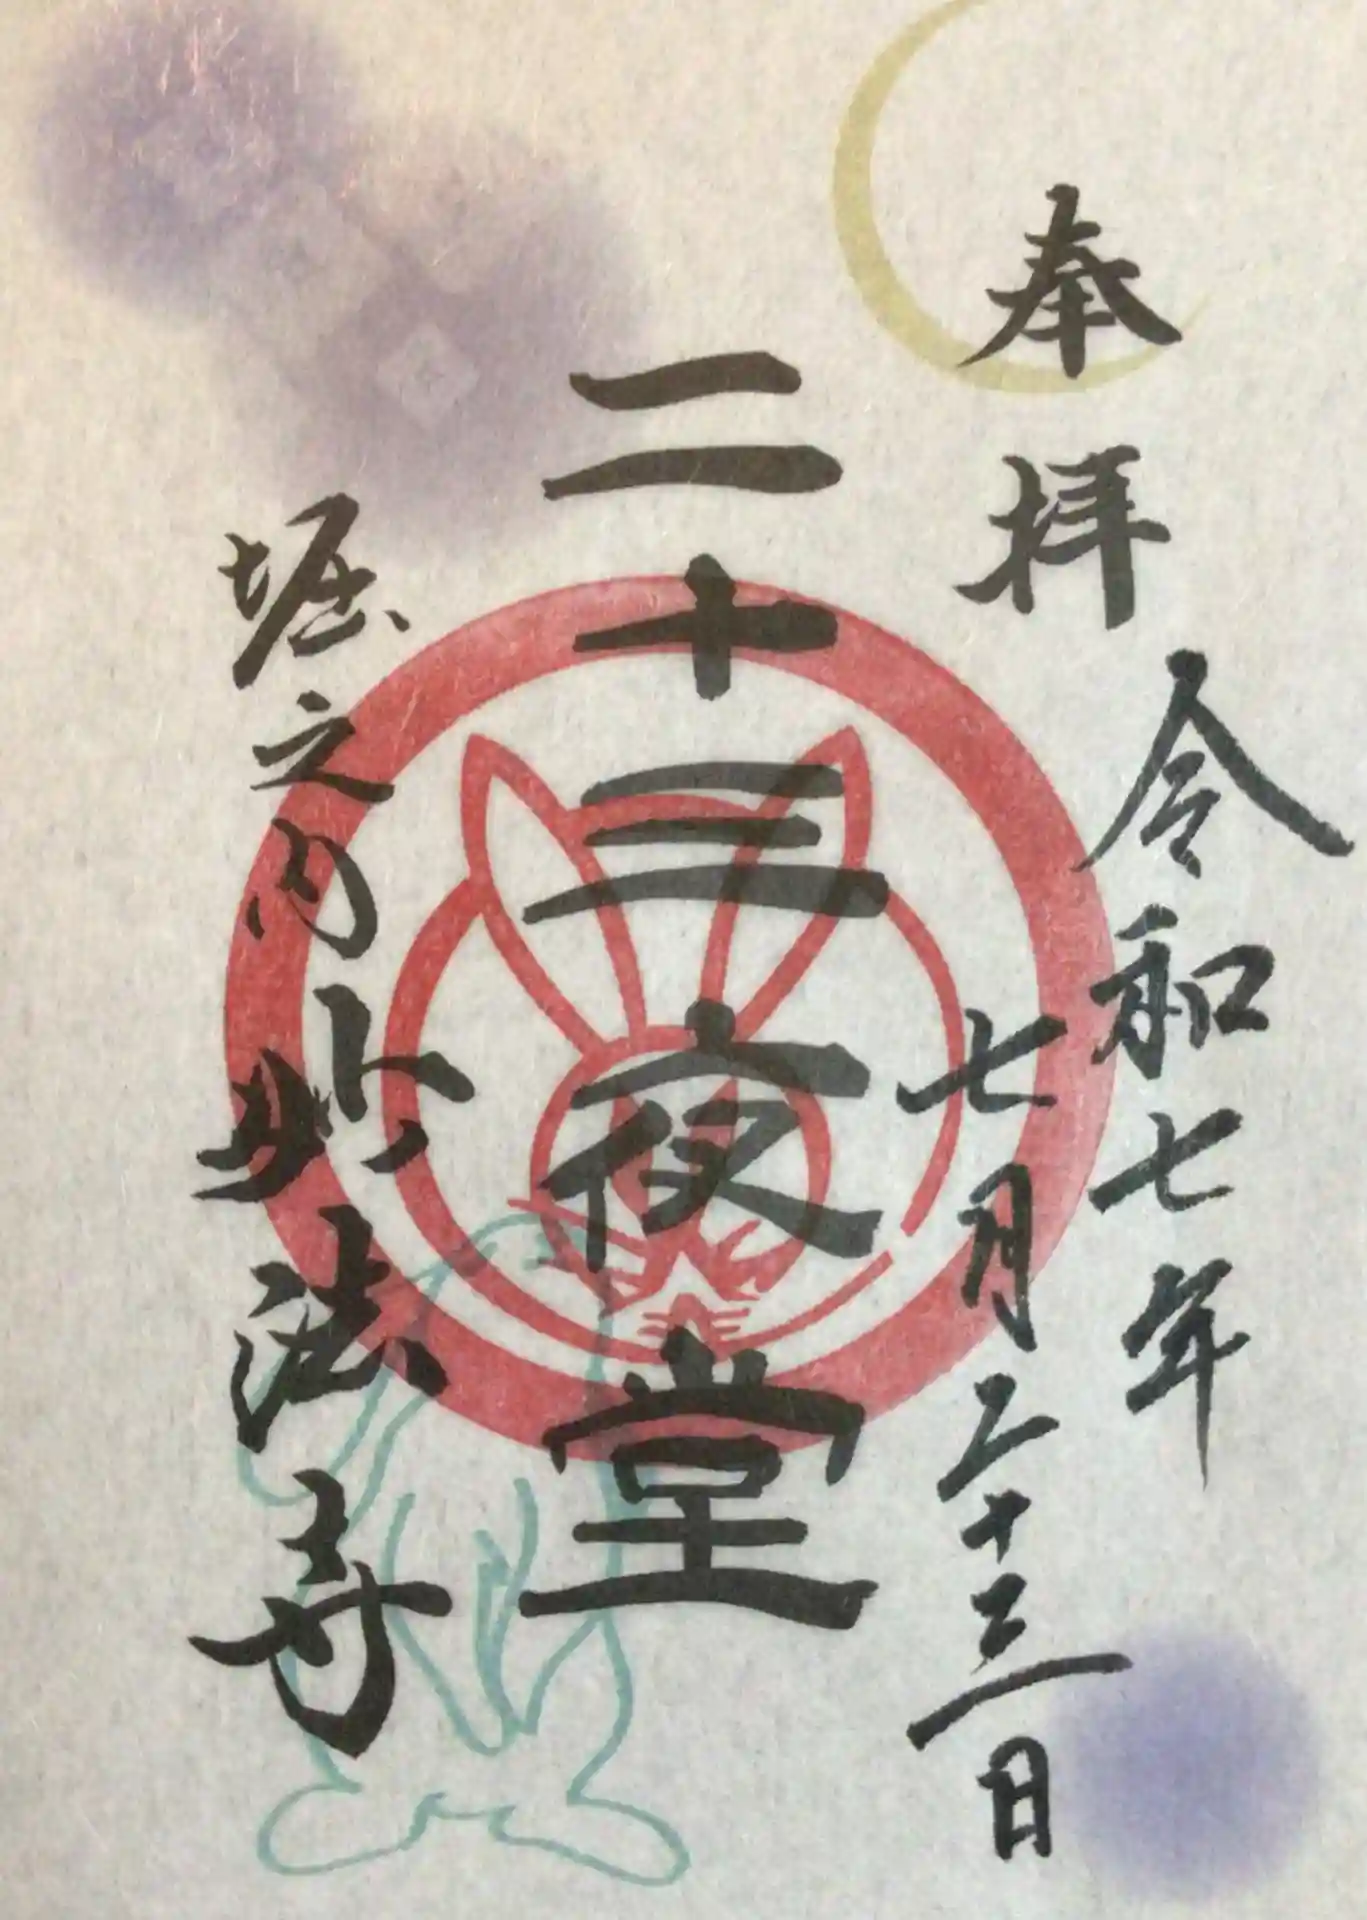 奉拝
令和七年
七月二十三日
二十三夜堂
堀之内妙法寺